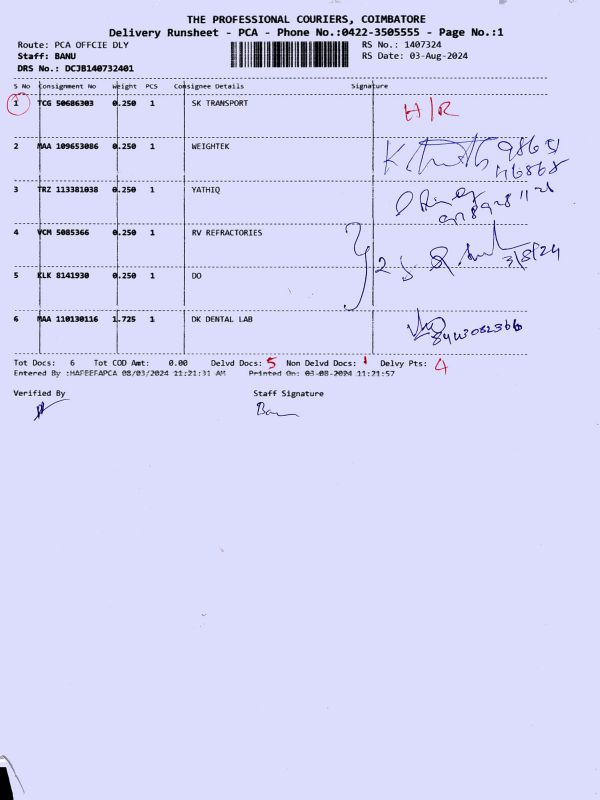 THE PROFESSIONAL COURIERS, COIMBATORE
Delivery Runsheet - PCA - Phone No.:0422-3505555 - Page No.:1
Route: PCA OFFCIE DLY RS No.: 1407324
Staff: BANU RS Date: 03-Aug-2024
DRS No.: DCJB140732401
S No Consignment No Weight PCS Consignee Details Signature
1 TCG 50686303 0.250 1 SK TRANSPORT H/R
2 MAA 109653086 0.250 1 WEIGHTEK
3 TRZ 113381038 0.250 1 YATHIQ
4 VCM 5085366 0.250 1 RV REFRACTORIES 3/8/24
5 KLK 8141930 0.250 1 DO
6 MAA 110130116 1.725 1 DK DENTAL LAB
Tot Docs: 6 Tot COD Amt: 0.00 Delvd Docs: 5 Non Delvd Docs: 1 Delvy Pts: 4
Entered By :HAFEEFAPCA 08/03/2024 11:21:31 AM Printed On: 03-08-2024 11:21:57
Verified By Staff Signature
Banu